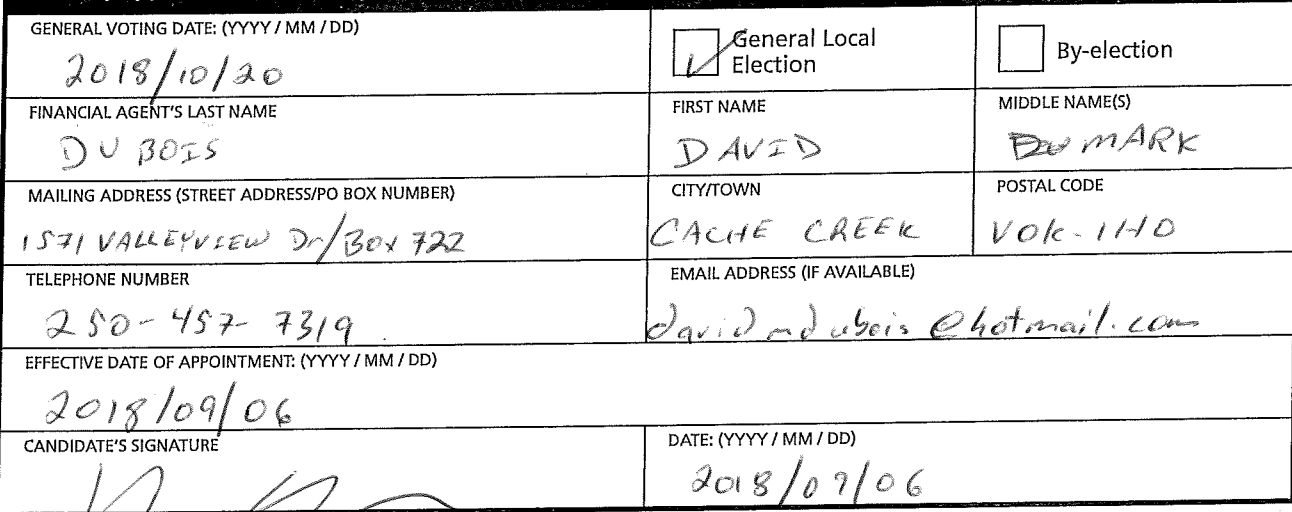 GENERAL VOTING DATE: (YYYY / MM / DD)
2018/10/20
General Local Election
By-election
FINANCIAL AGENT'S LAST NAME
DU BOIS
FIRST NAME
DAVID
MIDDLE NAME(S)
MARK
MAILING ADDRESS (STREET ADDRESS/PO BOX NUMBER)
1571 VALLEYVIEW Dr/Box 722
CITY/TOWN
CACHE CREEK
POSTAL CODE
V0K-1H0
TELEPHONE NUMBER
250-457-7319
EMAIL ADDRESS (IF AVAILABLE)
davidmdubois@hotmail.com
EFFECTIVE DATE OF APPOINTMENT: (YYYY / MM / DD)
2018/09/06
CANDIDATE'S SIGNATURE
DATE: (YYYY / MM / DD)
2018/09/06